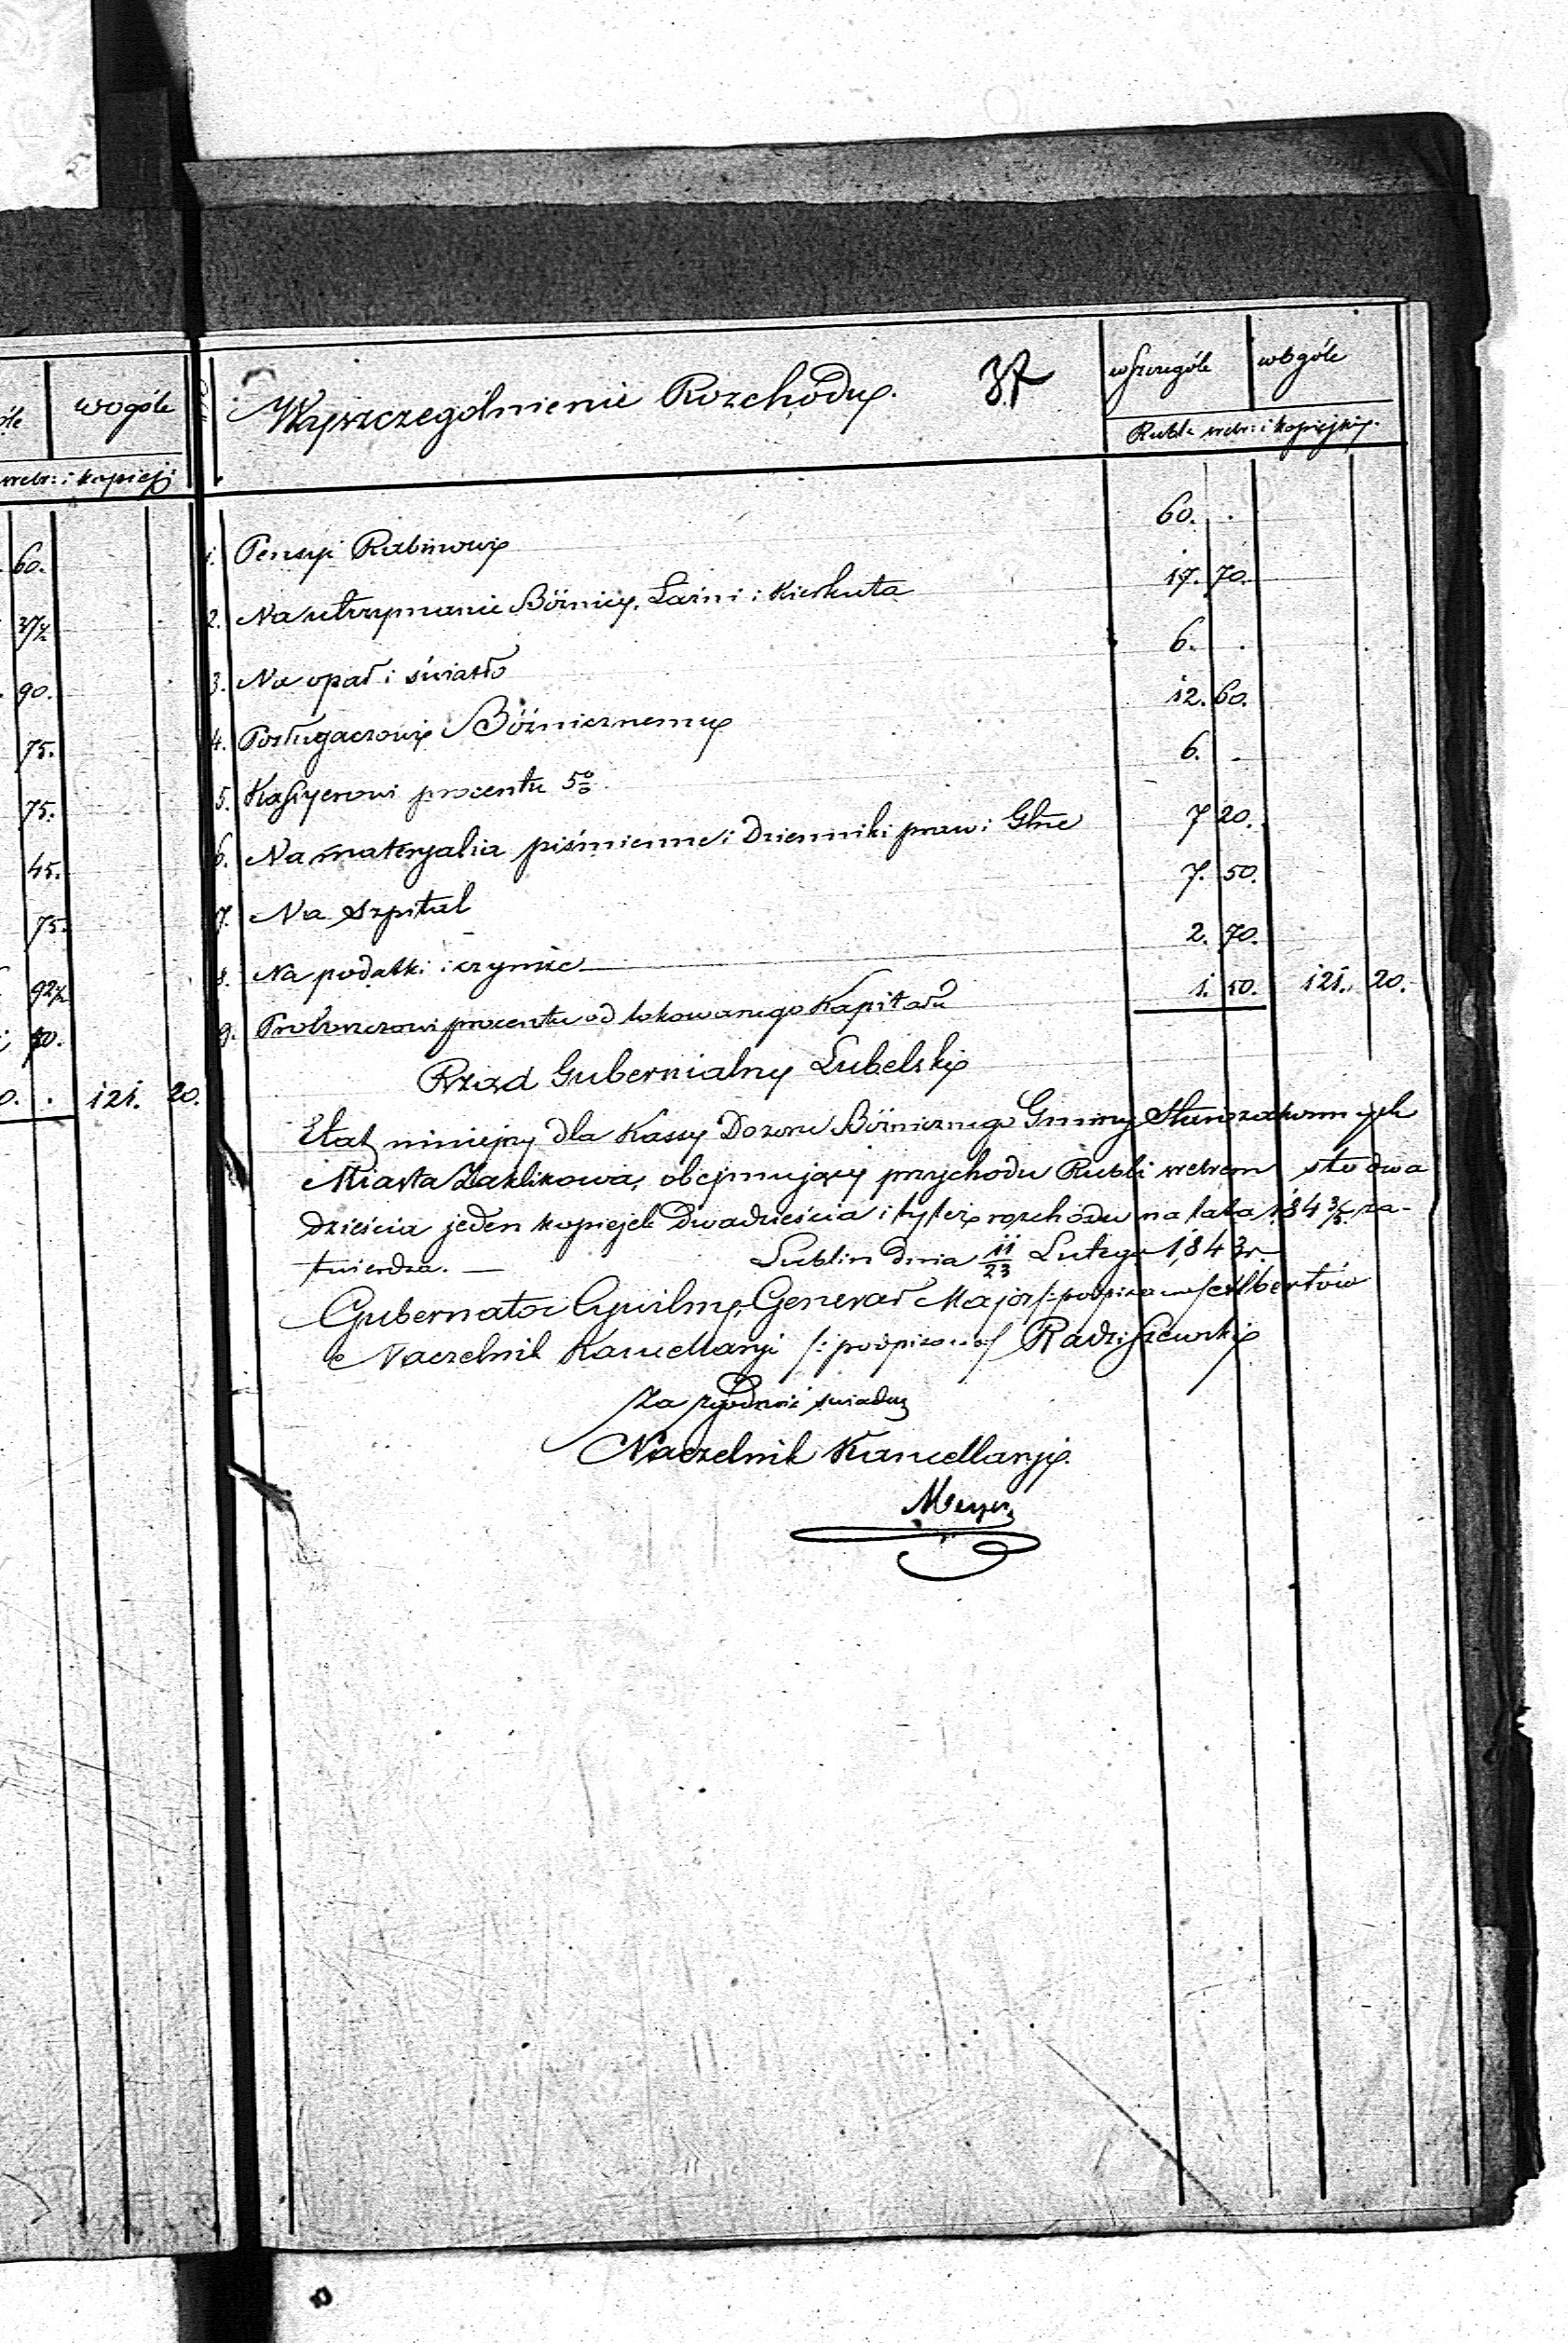 óle wogóle
srebr: i kopiej:
60.
37½
90.
75.
75.
45.
75.
92½
50.
0. . 121. 20.
Wyszczególnienie Rozchodu. 37 w szczególe wogóle
Rubli srebr: i kopiejki.
1. Pensyi Rabinowi 60. .
2. Na utrzymanie Bóźnicy, Łaźni i Kierkuta 17. 70.
3. Na opał i światło 6. .
4. Posługaczowi Bóźnicznemu 12. 60.
5. Kassyerowi procentu 5% 6. .
6. Na materyalia piśmienne i Dzienniki praw i Głne 7 20.
7. Na szpital 7. 50.
8. Na podatki i czynsze 2. 70.
9. Proboszczowi procentu od lokowanego Kapitału 1. 50. 121. 20.
Rząd Gubernialny Lubelski
Etat niniejszy dla Kassy Dozoru Bóżnicznego Gminy Starozakonnych
Miasta Zaklikowa, obejmujący przychodu Rubli srebrem sto dwa
dzieścia jeden kopiejek Dwadzieścia i tyleż rozchodu na lata 1843/5. za-
twierdza. — Lublin dnia 11/23 Lutego 1843 r
Gubernator Cywilny, Generał Major /: podpisano / Albertów
Naczelnik Kancellaryi /: podpisano / Radziszewski
Za zgodność świadczy
Naczelnik Kancellaryi.
Meyer